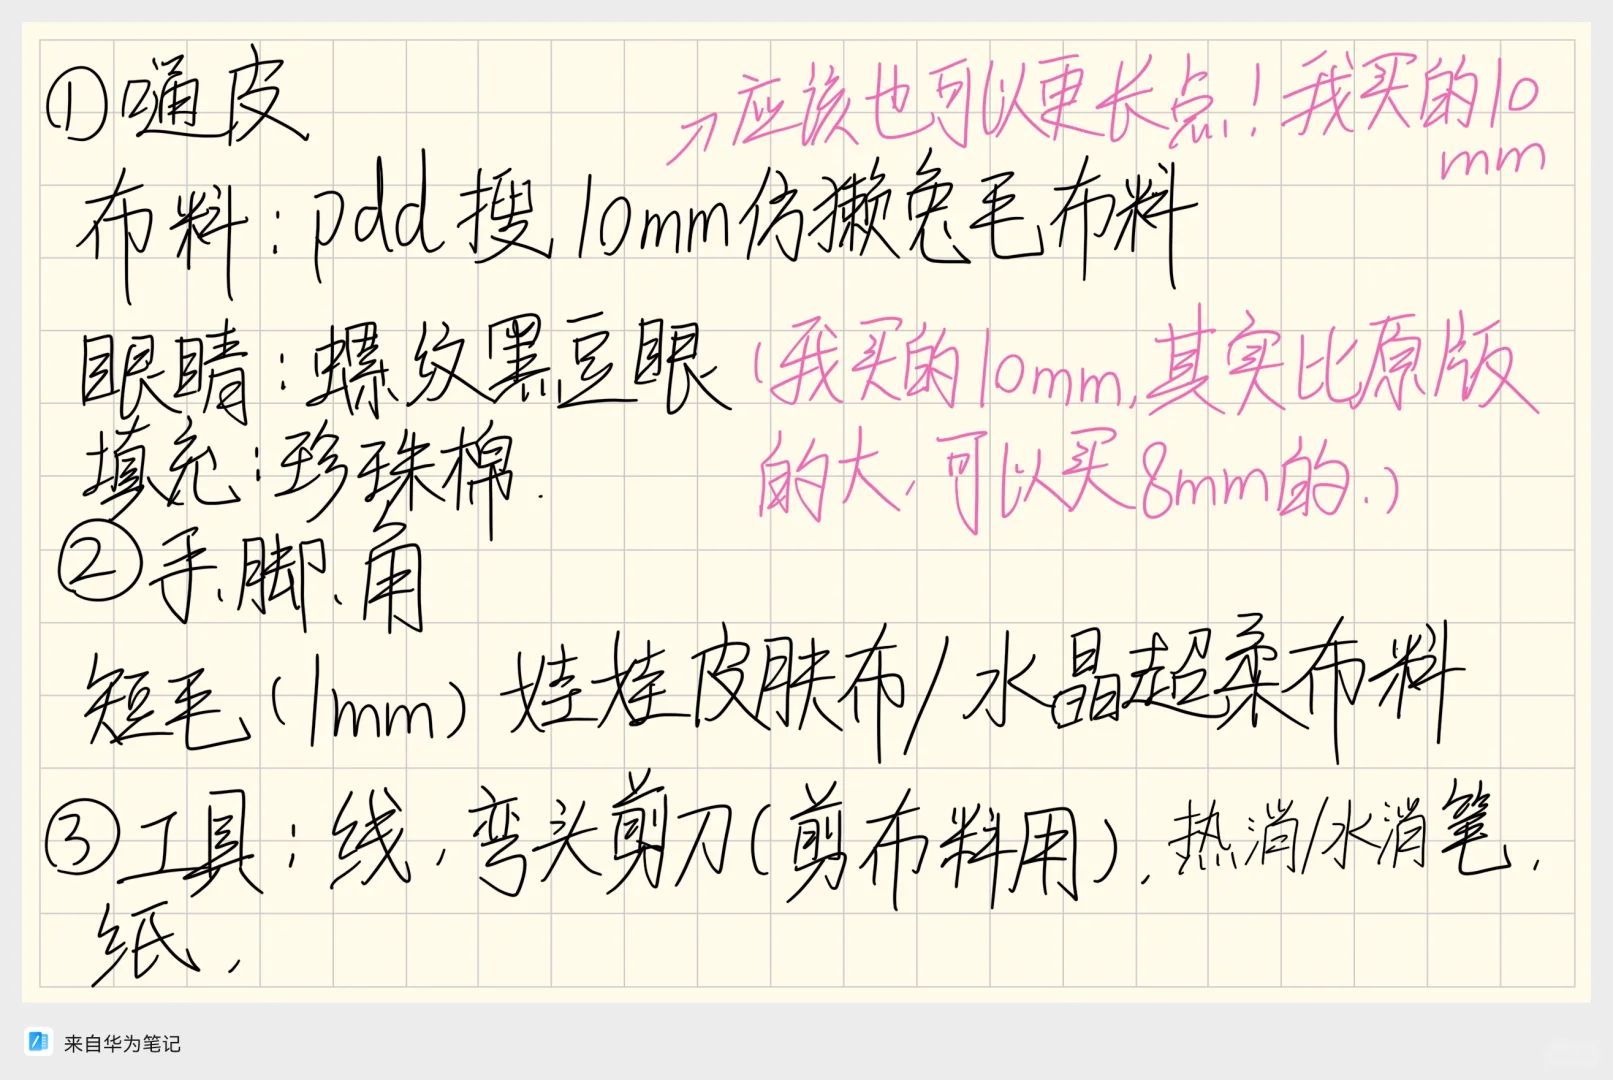 ①嗵皮
→应该也可以更长点！我买的10
mm
布料：pdd搜10mm仿獭兔毛布料
眼睛：螺纹黑豆眼（我买的10mm,其实比原版
填充：珍珠棉.
的大，可以买8mm的.）
②手、脚、角
短毛（1mm）娃娃皮肤布/水晶超柔布料
③工具：线，弯头剪刀(剪布料用），热消/水消笔，
纸，
来自华为笔记